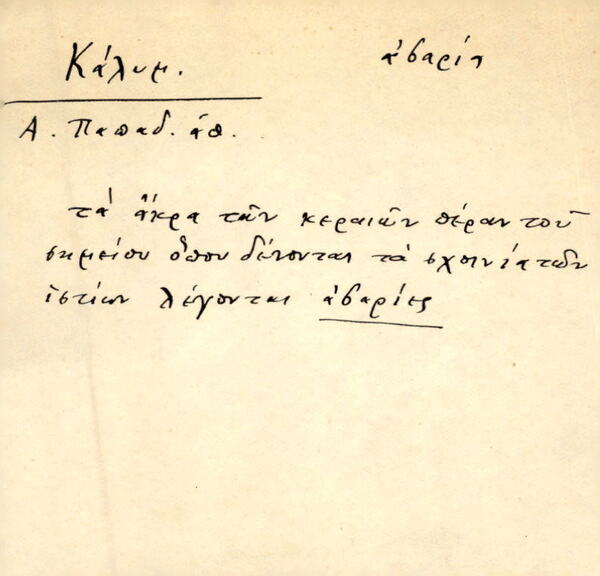 Κάλυμ.
ἀβαρία
Α. Παπαδ. ἀπ.
τὰ ἄκρα τῶν κεραιῶν πέραν τοῦ
σημείου ὅπου δένονται τὰ σχοινία τῶν
ἱστίων λέγονται ἀβαρίες